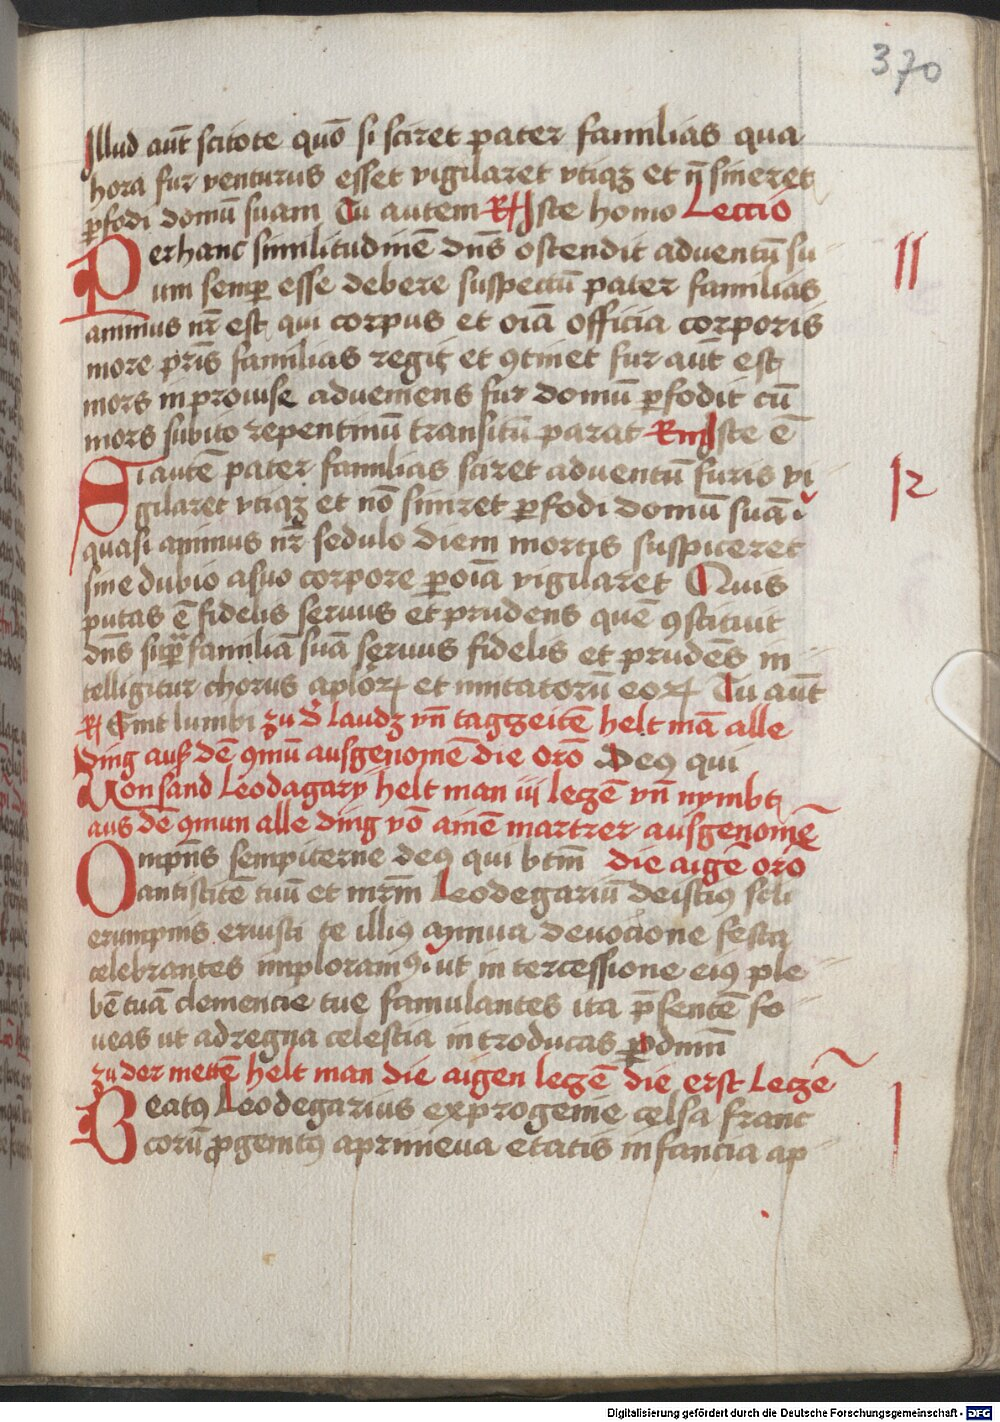 370
Illud aut̄ scitote quō si sciret pater familias qua
hora fur venturus esset vigilaret vtiqꝫ et n̄ sineret
ꝑfodi domū suam Tu autem R Iste homo Leccio
Per hanc similitudinē dn̄s ostendit adventū su
11
um semꝑ esse debere suspectū pater familias
animus nr̄ est qui corpus et oīa officia corporis
more pr̄is familias regit et ꝯtinet fur aut̄ est
mors inprouise adveniens fur domū ꝑfodit cū
mors subito repentinū transitū parat Rm Iste ē
Si autē pater familias sciret adventū furis vi
12
gilaret vtiqꝫ et nō sineret ꝑfodi domū suā i
quasi animus nr̄ sedulo diem mortis suspiceret
sine dubio a suo corpore ꝑ oīa vigilaret Quis
putas ē fidelis seruus et prudens quē ꝯstituit
dn̄s suꝑ familiā suā seruus fidelis et prudēs in
telligitur chorus aplorꝝ et imitatorū eorꝝ Tu aut̄
R Sint lumbi zu d laudꝫ vn̄ tagczeitē helt mā alle
ding aus dē ꝯmū ausgenomē die orō Deꝰ qui
Von sand Leodagary helt man iij leczē vn̄ nymbt
aus dē ꝯmun alle ding vō ainē martrer ausgenomē
Omp̄ns sempiterne deꝰ qui btm̄ die aigē orō
antistitē tuū et mr̄m Leodegariū de istiꝰ scli
erumpnis eruisti te illiꝰ annua deuocione festa
celebrantes imploramꝰ ut in tercessione eiꝰ ple
bē tuā clemencie tue famulantes ita p̄sentē fo
ueas ut ad regna celestia introducas ꝑ dnm̄
zu der mettē helt man die aigen leczē die erst Leczē
Beatꝰ Leodegarius ex progenie celsa franc
1
corū ꝓgenitꝰ a primeua etatis infancia ap
Digitalisierung gefördert durch die Deutsche Forschungsgemeinschaft - DFG